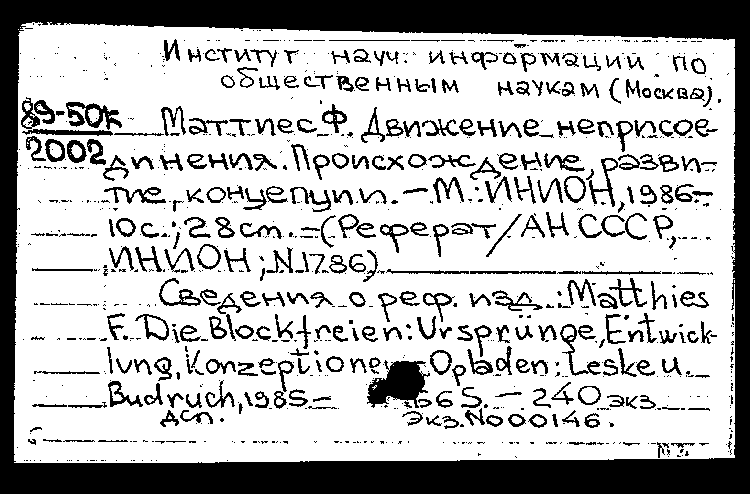 Институт науч. информации по
общественным наукам (Москва).
89-50К Маттиес Ф. Движение неприсое-
2002 динения. Происхождение, разви-
тие, концепции. - М.: ИНИОН, 1986-
10с.; 28cm. - (Реферат/АН СССР,
ИНИОН; N1786)
Сведения о реф. изд.: Matthies
F. Die Blockfreien: Ursprünge, Entwick-
lung, Konzeptionen - Opladen: Leske u.
Budruch, 1985 - S. - 240 экз
дсп. Экз. No000146.